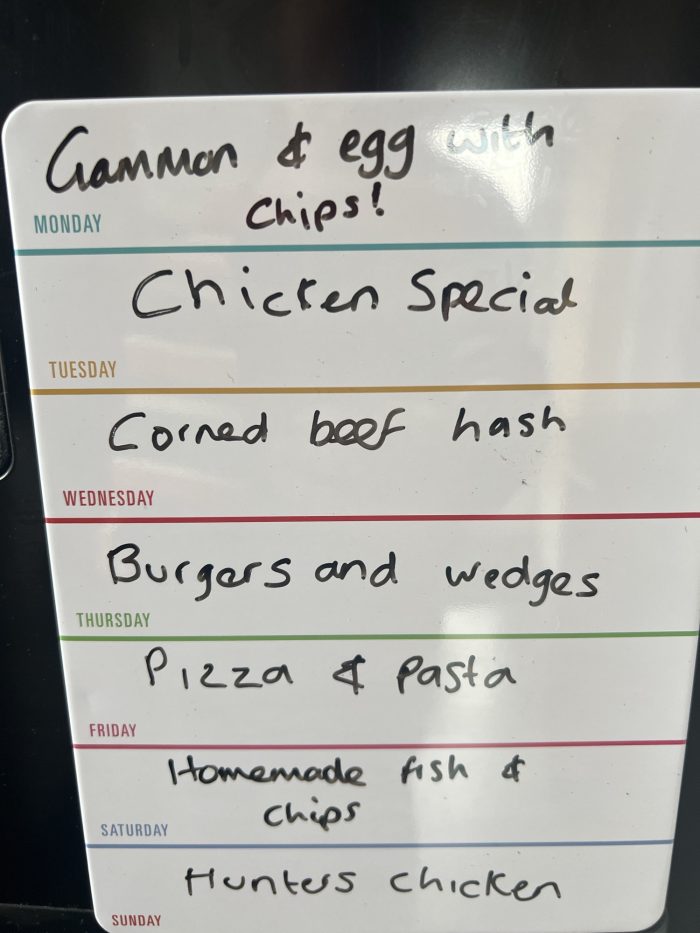 Gammon & egg with
chips!
MONDAY
Chicken Special
TUESDAY
Corned beef hash
WEDNESDAY
Burgers and wedges
THURSDAY
Pizza & pasta
FRIDAY
Homemade fish &
chips
SATURDAY
Hunters chicken
SUNDAY